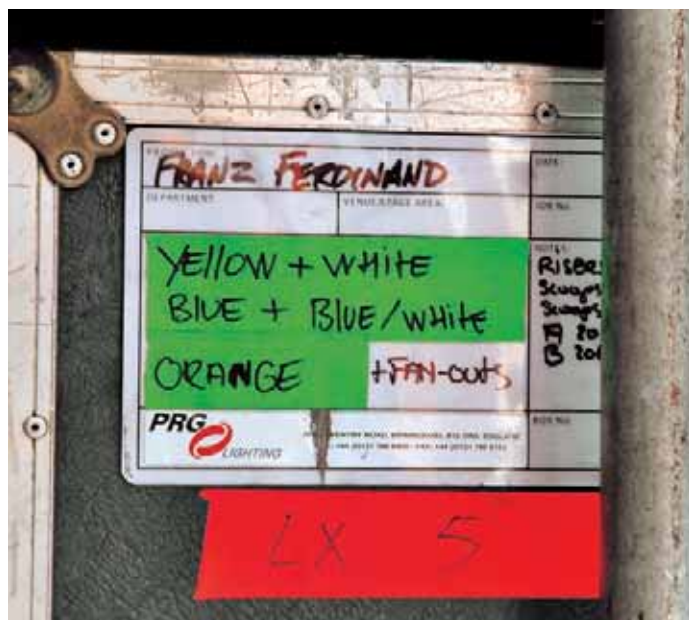 FRANZ FERDINAND
DATE
DEPARTMENT
VENUE/STAGE AREA
JOB No.
YELLOW + WHITE
BLUE + BLUE/WHITE
ORANGE
+FAN-OUTS
NOTES
RISERS
Scoops
Scoops
A 20
B 20
PRG
LIGHTING
BOX No.
LX 5